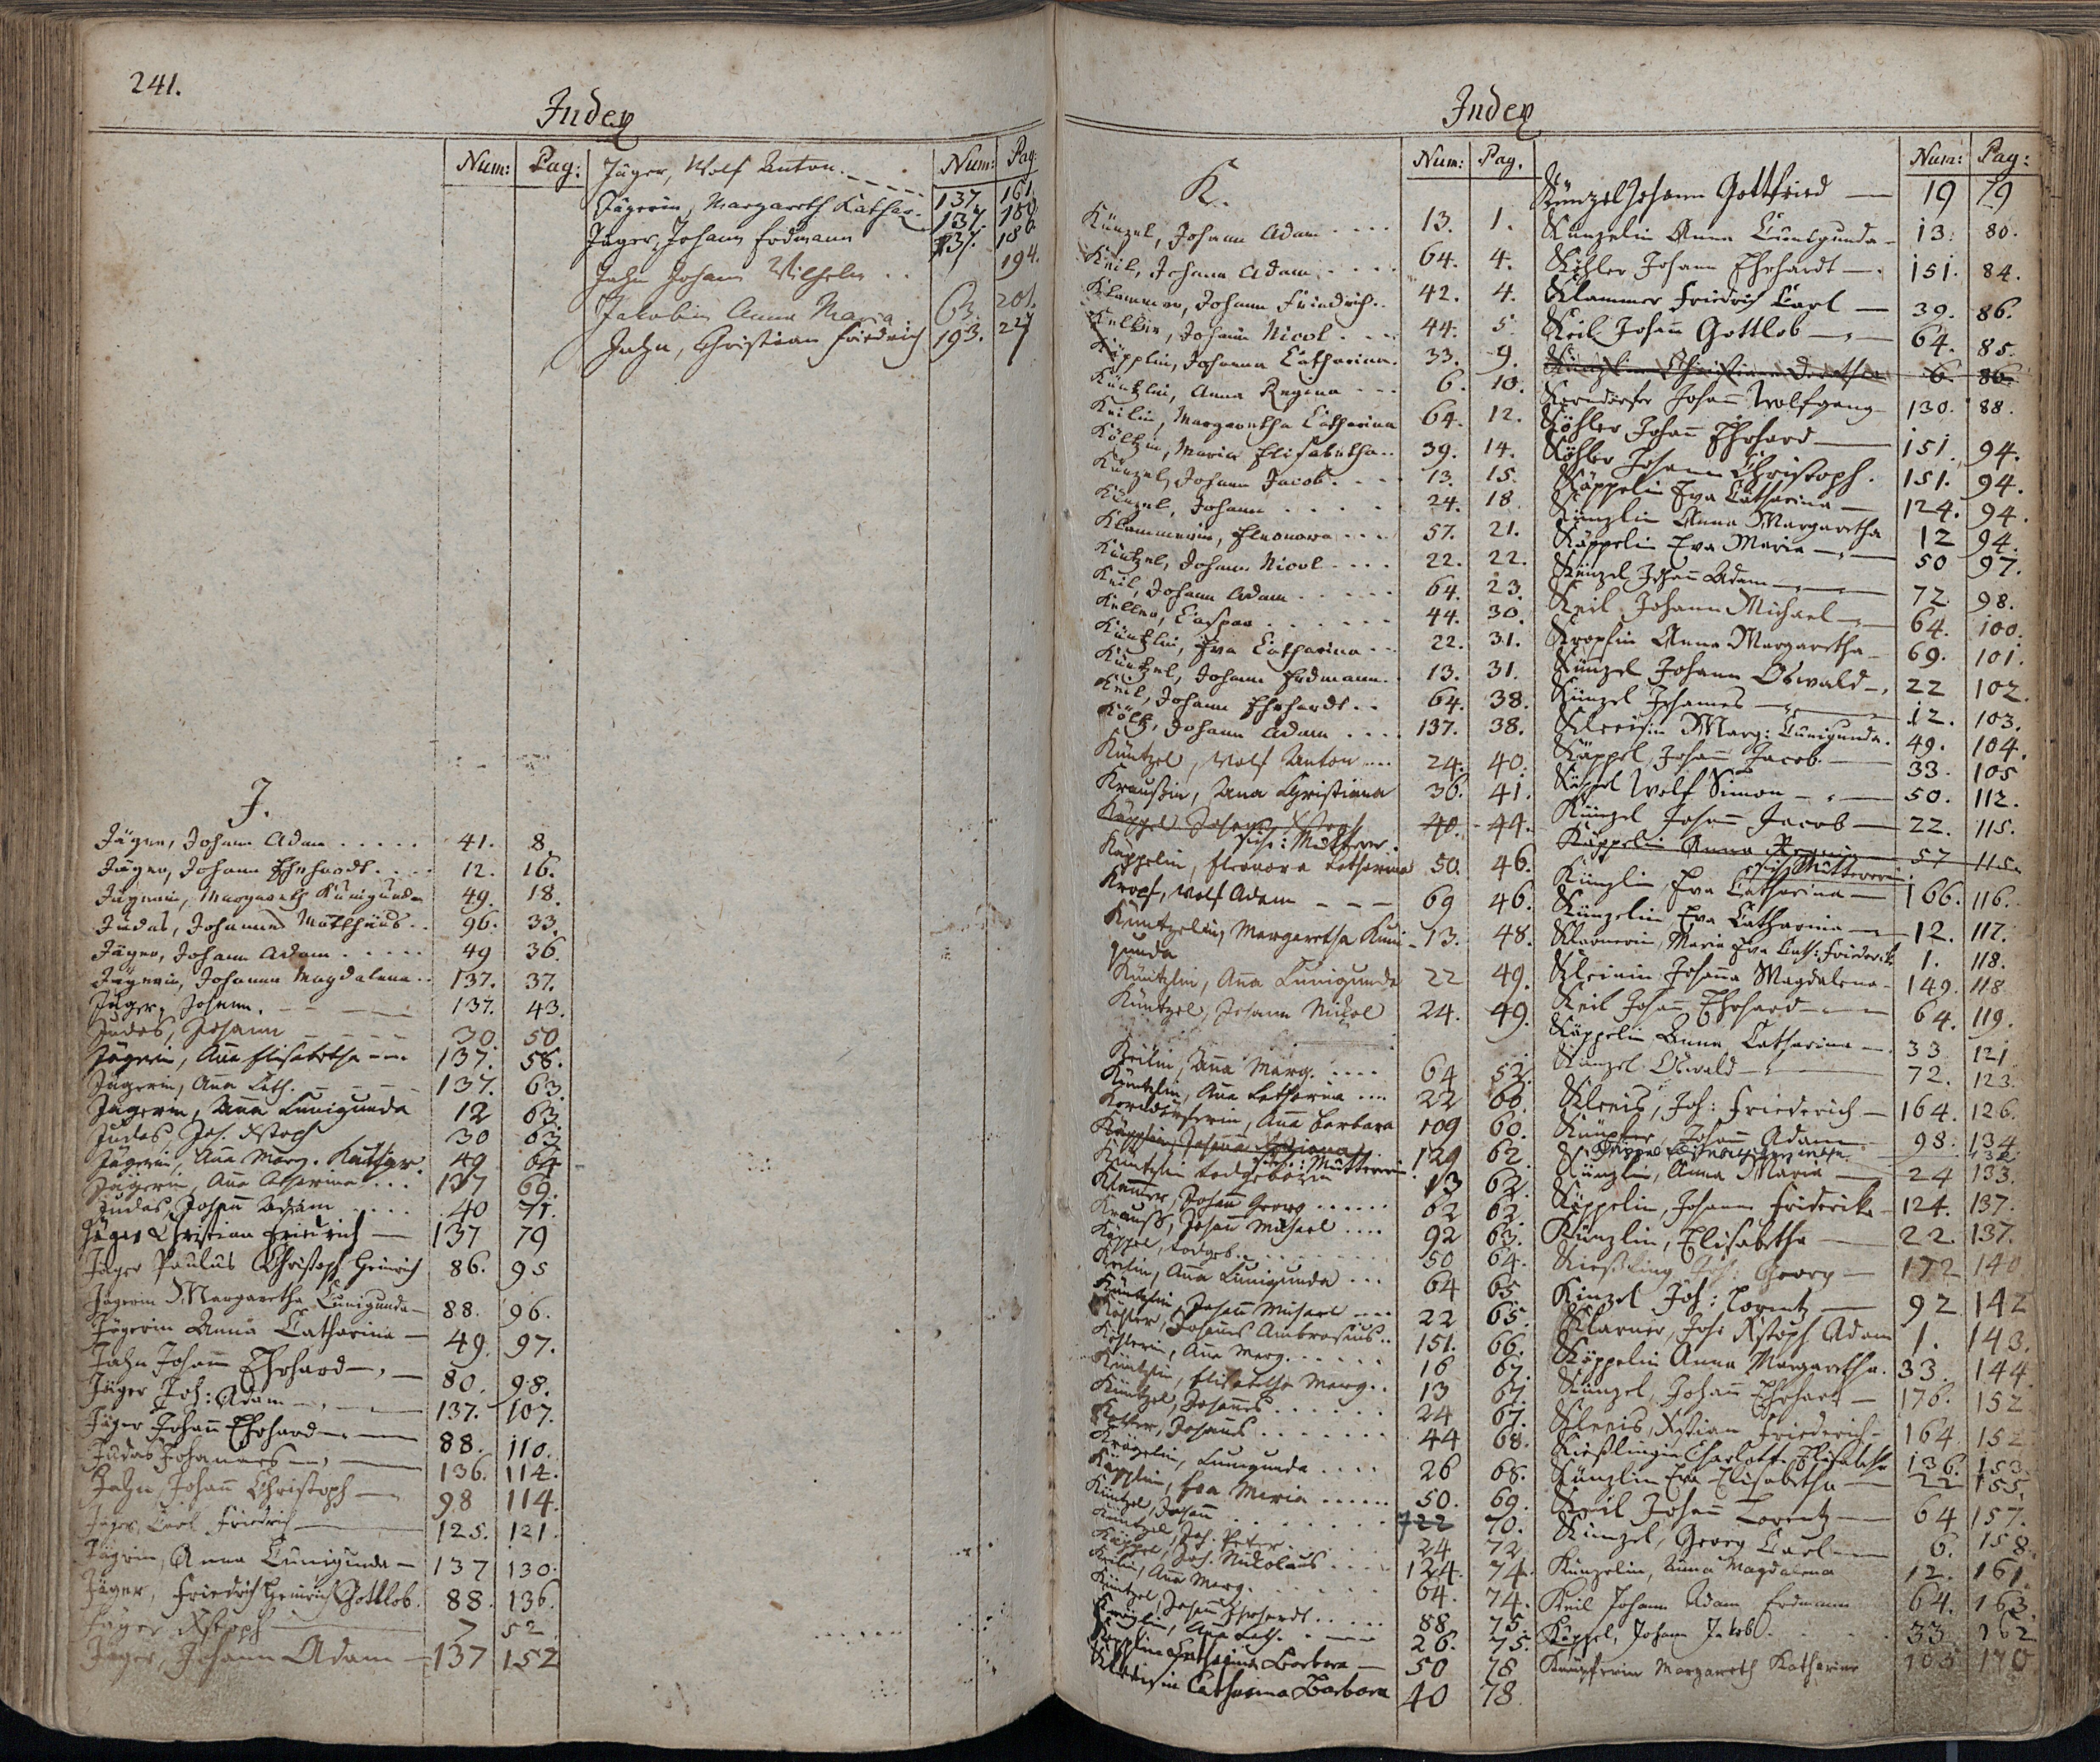 241.
Index
Num: Pag:
J.
Jäger, Johann Adam ..... 41. 8.
Jäger, Johann Ehrhardt .... 12. 16.
Jägerin, Margareth Kunigunda 49. 18.
Judas, Johannes Matthäus .. 96. 33.
Jäger, Johann Adam ..... 49 36.
Jägerin, Johanna Magdalena .. 137. 37.
Jäger, Johann. 137. 43.
Judas, Johann 30 50
Jägerin, Anna Elisabetha 137. 58.
Jägerin, Anna Cath. 137. 63.
Jägerin, Anna Cunigunda 12 63.
Judas, Joh. Xstoph 30 63
Jägerin, Anna Marg. Kathar. 49 64
Jägerin, Anna Catharina ... 137 69.
Judas, Johann Adam 40 71.
Jäger Christian Friedrich — 137 79
Jäger Paulus Christoph Heinrich 86. 95
Jägerin Margaretha Cunigunda — 88. 96.
Jägerin Anna Catharina — 49. 97.
Jahn Johann Ehrhard — 80. 98.
Jäger Joh: Adam — 137. 107.
Jäger Johann Ehrhard — 88. 110.
Judas Johannes — 136. 114.
Jahn Johann Christoph — 98 114.
Jäger, Carl Friedrich 125. 121.
Jägerin, Anna Cunigunda — 137 130.
Jäger, Friedrich Heinrich Gottlob. 88. 136.
Jäger Xstoph 7 52
Jäger, Johann Adam — 137 152
Num: Pag:
Jäger, Wolf Anton. 137. 161.
Jägerin, Margareth Kathar. 137. 180.
Jäger, Johann Erdmann 137. 186.
Jahn Johann Wilhelm .. 194.
Jakobin Anna Maria. 63. 201.
Jahn, Christian Friedrich 193. 227
Index
Num: Pag.
K.
Künzel, Johann Adam .... 13. 1.
Keil, Johann Adam .... 64. 4.
Klammer, Johann Friedrich .. 42. 4.
Johann Nicol ... 44. 5.
Käpplin, Johanna Catharina. 33. 9.
Küntzlin, Anna Regina ... 6. 10.
Keilin, Margaretha Catharina 64. 12.
Költzin, Maria Elisabetha .. 39. 14.
Künzel, Johann Jacob .... 13. 15.
Künzel, Johann ..... 24. 18
Klammerin, Eleonora ... 57. 21.
Küntzel, Johann Nicol .... 22. 22.
Keil, Johann Adam ..... 64. 23.
Keller, Caspar ...... 44. 30.
Küntzlin, Eva Catharina .. 22. 31.
Küntzel, Johann Erdmann. 13. 31.
Keil, Johann Ehrhardt .. 64. 38.
Költz, Johann Adam .... 137. 38.
Küntzel, Wolf Anton .... 24. 40.
Kraußin, Anna Christiana 36. 41.
Käppel Johann Xstoph 40. 44.
siehe: Mutterer.
Käppelin, Eleonora Catharina 50. 46.
Kropf, Wolf Adam — — — 69 46.
Küntzelin, Margaretha Kuni- 13. 48.
gunda
Küntzlin, Anna Cunigunda 22 49.
Küntzel, Johann Nicol 24. 49.
Keilin, Anna Marg. .... 64 52.
Küntzlin, Anna Catharina .... 22 60.
Korndörferin, Anna Barbara 109 60.
Käpplin, Johanna 129 62.
siehe: Mutterin
Küntzlin todgebohrn 13 62.
Klammer, Johann Georg ...... 62 62.
Krauß, Johann Michael .... 92 63.
Käppel, todgeb. 50 64.
Keilin, Anna Cunigunda ... 64 65
Küntzlin, Johann Michael .... 22 65.
Köhler, Johannes Ambrosius .. 151. 66.
Köhlerin, Anna Marg. ..... 16 67.
Küntzlin, Elisabetha Marg. .. 13 67.
Küntzel, Johannes ...... 24 67.
Johannes ....... 44 68.
Cunigunda .... 26 68.
Käpplin, Eva Maria ...... 50. 69.
Küntzel, Johann ........ 722 70.
Küntzel, Joh. Peter. 24 72
Käppel, Joh. Nikolaus .... 124. 74.
Keilin, Anna Marg. 64. 74.
Küntzel, Johann Ehrhardt ..... 88 75.
Anna Cath. 26. 75.
Käpplin Catharina Barbara — 50 78
Catharina Barbara 40 78.
Num: Pag:
Künzel Johann Gottfried — 19 79
Künzelin Anna Cunigunda — 13. 80.
Köhler Johann Ehrhardt — 151. 84.
Klammer Friedrich Carl — 39. 86.
Keil Johann Gottlob — 64. 85.
Künzlin Christiana Dorothea 6. 86.
Korndörfer Johann Wolfgang 130. 88.
Köhler Johann Ehrhard — 151. 94.
Köhler Johann Christoph. 151. 94.
Käppelin Eva Catharina — 124. 94.
Künzlin Anna Margaretha 12 94.
Käppelin Eva Maria — 50 97.
Künzel Johann Adam — 72 98.
Keil Johann Michael — 64. 100.
Kropfin Anna Margaretha — 69. 101.
Künzel Johann Oswald — 22 102.
Künzel Johannes — 12. 103.
Marg: Cunigunda. 49. 104.
Käppel, Johann Jacob — 33. 105
Käppel Wolf Simon — 50. 112.
Künzel Johann Jacob — 22. 115.
Käppelin Anna Regina 57 115.
siehe Muttererin.
Künzlin Eva Catharina — 166. 116.
Künzelin Eva Catharina — 12. 117.
Klarnerin, Maria Eva Cath: Friederik. 1. 118.
Johanna Magdalena — 149. 118.
Keil Johann Ehrhard — 64. 119.
Käppelin Anna Catharina — 33 121
Künzel Oswald — 72. 123.
Joh: Friederich — 164. 126.
Johann Adam 98. 134
Künzlin, Anna Maria — 24 133.
Käppelin, Johann Friderika — 124. 137.
Künzlin, Elisabetha — 22. 137.
Kießling Joh: Georg — 172 140
Kinzel Joh: Lorentz — 92 142
Klarner, Joh: Xstoph Adam 1. 143.
Käppelin Anna Margaretha. 33. 144.
Künzel, Johann Ehrhart — 176. 152
Xstian Friederich — 164 152
Kießlingin Charlotte Elisabeth 136. 153.
Künzlin Eva Elisabetha — 22 155.
Keil Johann Lorentz — 64 157.
Künzel, Georg Carl — 6. 158.
Künzelin, Anna Magdalena 12. 161.
Keil Johann Adam Erdmann 64. 163.
Käppel, Johann Jakob. 33 162
Margareth Katharina 103 170